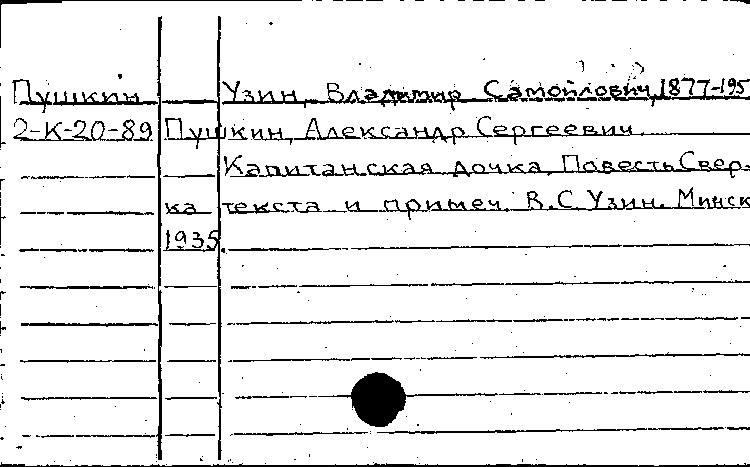 Пушкин Узин, Владимир Самойлович, 1877-195
2-К-20-89 Пушкин, Александр Сергеевич.
Капитанская дочка. Повесть Свер-
ка текста и примеч. В.С Узин. Минск
1935.